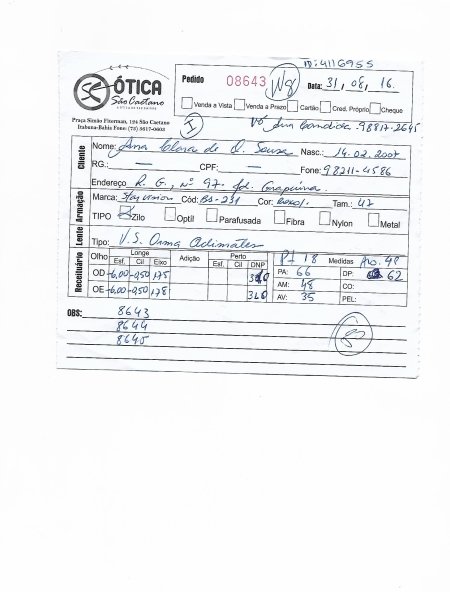 ID: 4116955
ÓTICA
São Caetano
Pedido 08643 Data: 31, 08, 16.
Venda a Vista Venda a Prazo Cartão Créd. Próprio Cheque
Praça Simão Fiterman, 124 São Caetano
Itabuna-Bahia Fone: (73) 3617-0603
I
98817-2645
Cliente
Nome: Ana Clara de O. Sousa Nasc.: 14.02.2007
RG.: — CPF: — Fone: 98211-4586
Endereço R. G., nº 97. Jd. Grapiúna.
Armação
Marca: Cód: BS-231 Cor: Tam.: 47
TIPO Zilo Optil Parafusada Fibra Nylon Metal
Lente
Tipo: V.S. Orma
Receituário
Olho Longe Adição Perto Pt 18 Medidas Aro. 49
Esf. Cil Eixo Esf. Cil DNP PA: 66 DP: 62
OD -6,00 -0,50 175 AM: 48 CO:
OE -6,00 -0,50 178 AV: 35 PEL:
OBS: 8643
8644
8645